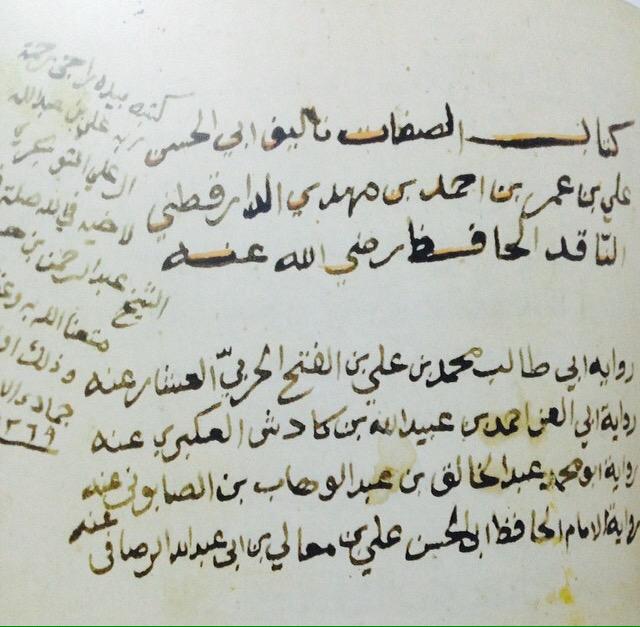 كتاب الصفات تاليف ابي الحسن
علي بن عمر بن احمد بن مهدي الدارقطني
الناقد الحافظ رضي الله عنه
روايه ابي طالب محمد بن علي بن الفتح الحربيّ العشار عنه
رواية ابي العز احمد بن عبيد الله بن كادش العكبري عنه
رواية ابو محمد عبد الخالق بن عبد الوهاب بن الصابوني عنه
رواية الامام الحافظ ابي الحسن علي بن معالي بن ابي عبد الله الرصافي عنه
كتبه بيده راجي رحمة
ربه علي بن عبد الله
لاخيه في الله
الشيخ عبد الرحمن بن
متعنا الله
وذلك
جمادى
١٣٦٩